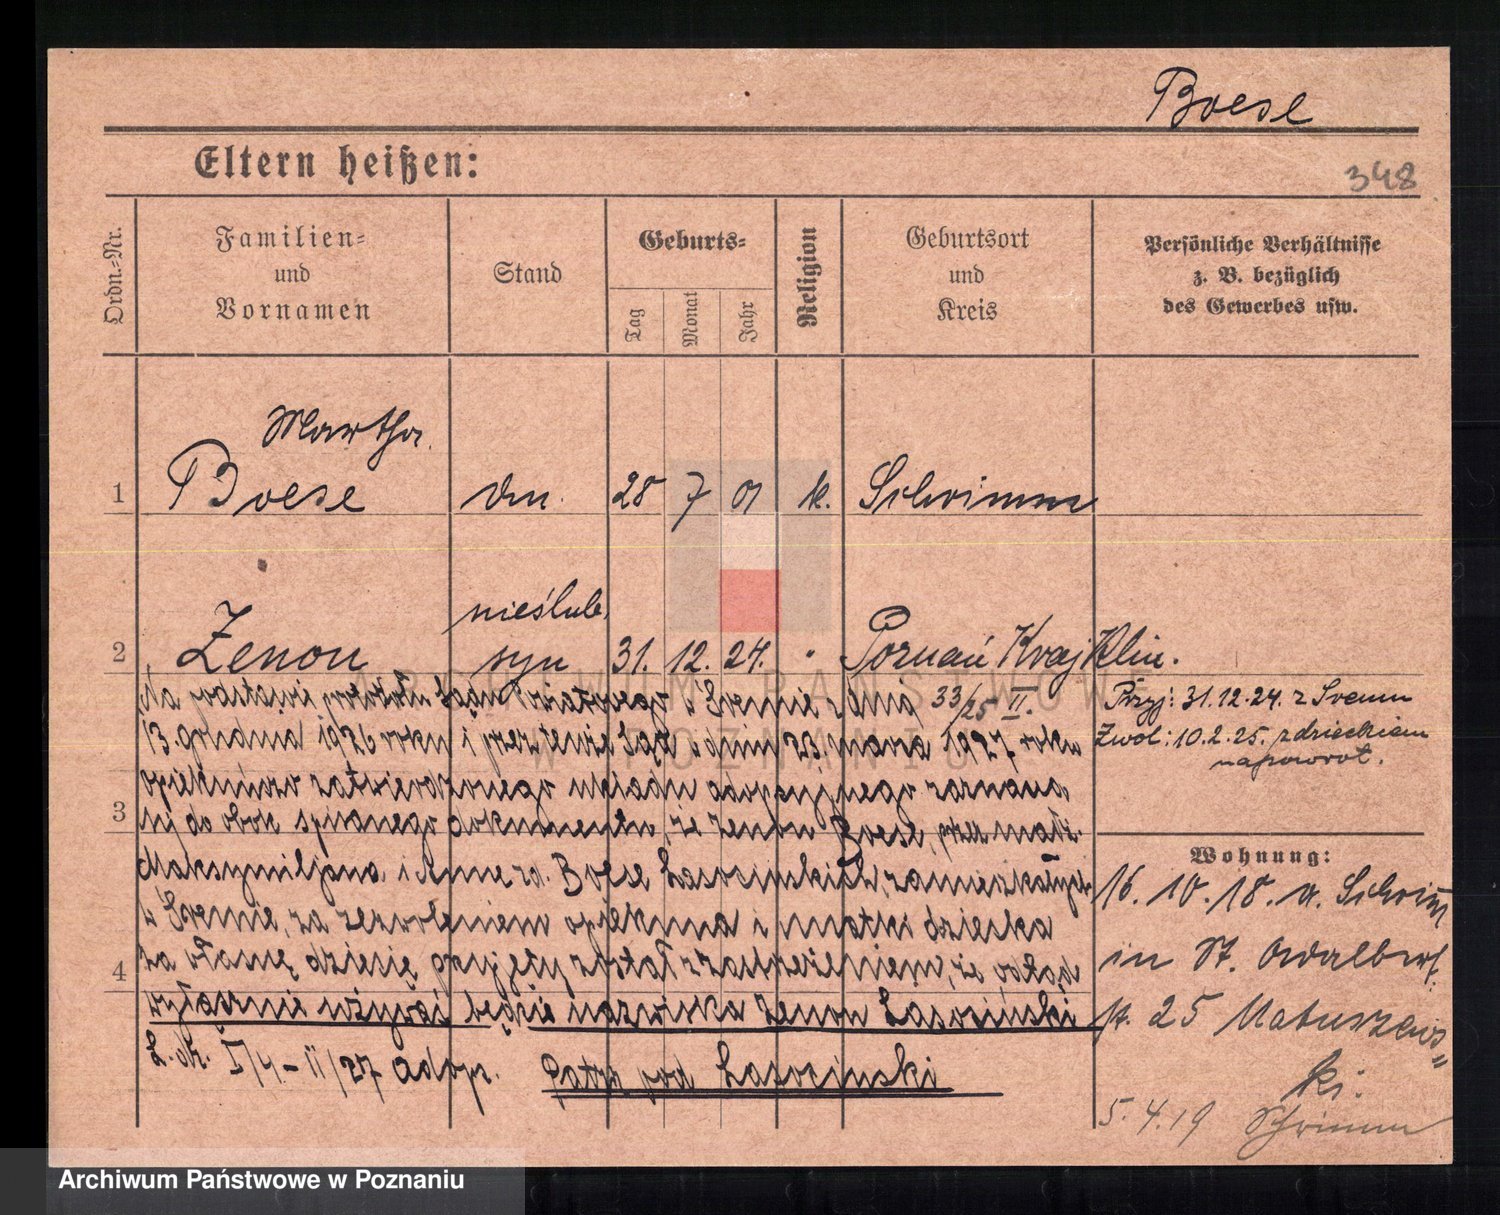 Boese
Eltern heißen:
348
Ordn.-Nr.
Familien-
und
Vornamen
Stand
Geburts-
Tag
Monat
Jahr
Religion
Geburtsort
und
Kreis
Persönliche Verhältnisse
z. B. bezüglich
des Gewerbes usw.
Martha
1 Boese 28 7 01 k. Schrimm
nieślub.
2 Zenon syn 31. 12. 24. " Poznań Kraj Klin.
Przyj: 31.12.24. z Śremu
Zwol: 10.2.25. z dzieckiem
napowrot.
Na podstawie Sądu Powiatowego w Śremie z dnia 33/25 II.
13. grudnia 1926 roku i przez tenże Sąd w dniu 23 marca 1927 roku
opiekuńczo zatwierdzonego układu adopcyjnego zaznacza
3 się do obok spisanego dokumentu, że Zenon Boese, przez małż.
Maksymiljana i Annę zd. Boese Łasocińskich, zamieszkałych
w Śremie, za zezwoleniem opiekuna i matki dziecka
4 za własne dziecię przyjęty został z zastrzeżeniem, że odtąd
wyłącznie używać będzie nazwiska Zenon Łasociński
L. dz. I/4 - 11/27 adop. patrz pod Łasociński
Wohnung:
16. 10. 18. a. Schrim
in St. Adalbert
st. 25 Matuszews=
ki.
5. 4. 19 Schrimm
ARCHIWUM PAŃSTWOWE
W POZNANIU
Archiwum Państwowe w Poznaniu